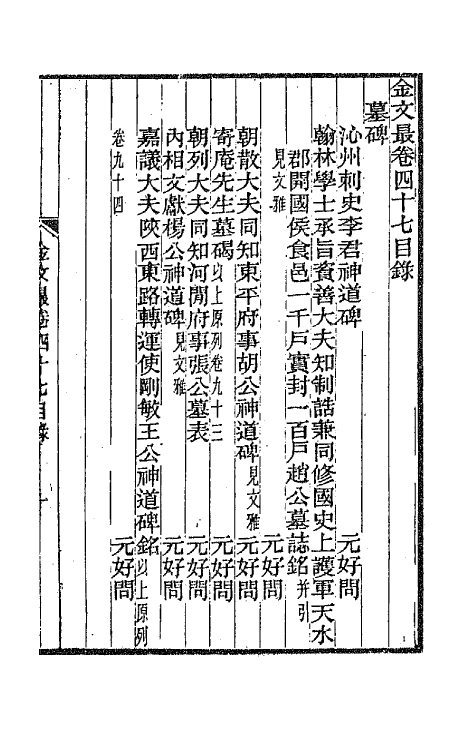 金文最卷四十七目錄
墓碑
沁州刺史李君神道碑　元好問
翰林學士承旨資善大夫知制誥兼同修國史上護軍天水
郡開國侯食邑一千戶實封一百戶趙公墓誌銘并引
見文雅　元好問
朝散大夫同知東平府事胡公神道碑見文雅　元好問
寄庵先生墓碣以上原列卷九十三　元好問
朝列大夫同知河閒府事張公墓表　元好問
內相文獻楊公神道碑見文雅　元好問
嘉議大夫陝西東路轉運使剛敏王公神道碑銘以上原列
卷九十四　元好問
金文最卷四十七目錄　一